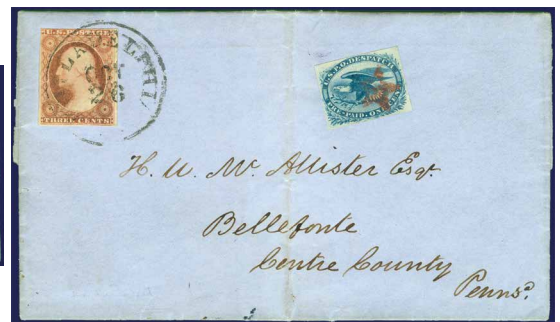 U.S. POSTAGE
THREE CENTS
LADELPHI
OCT
26
U.S.P.O. DESPATCH
PRE-PAID. ONE CENT
H. N. Mc Allister Esqr.
Bellefonte
Centre County
Penns.a